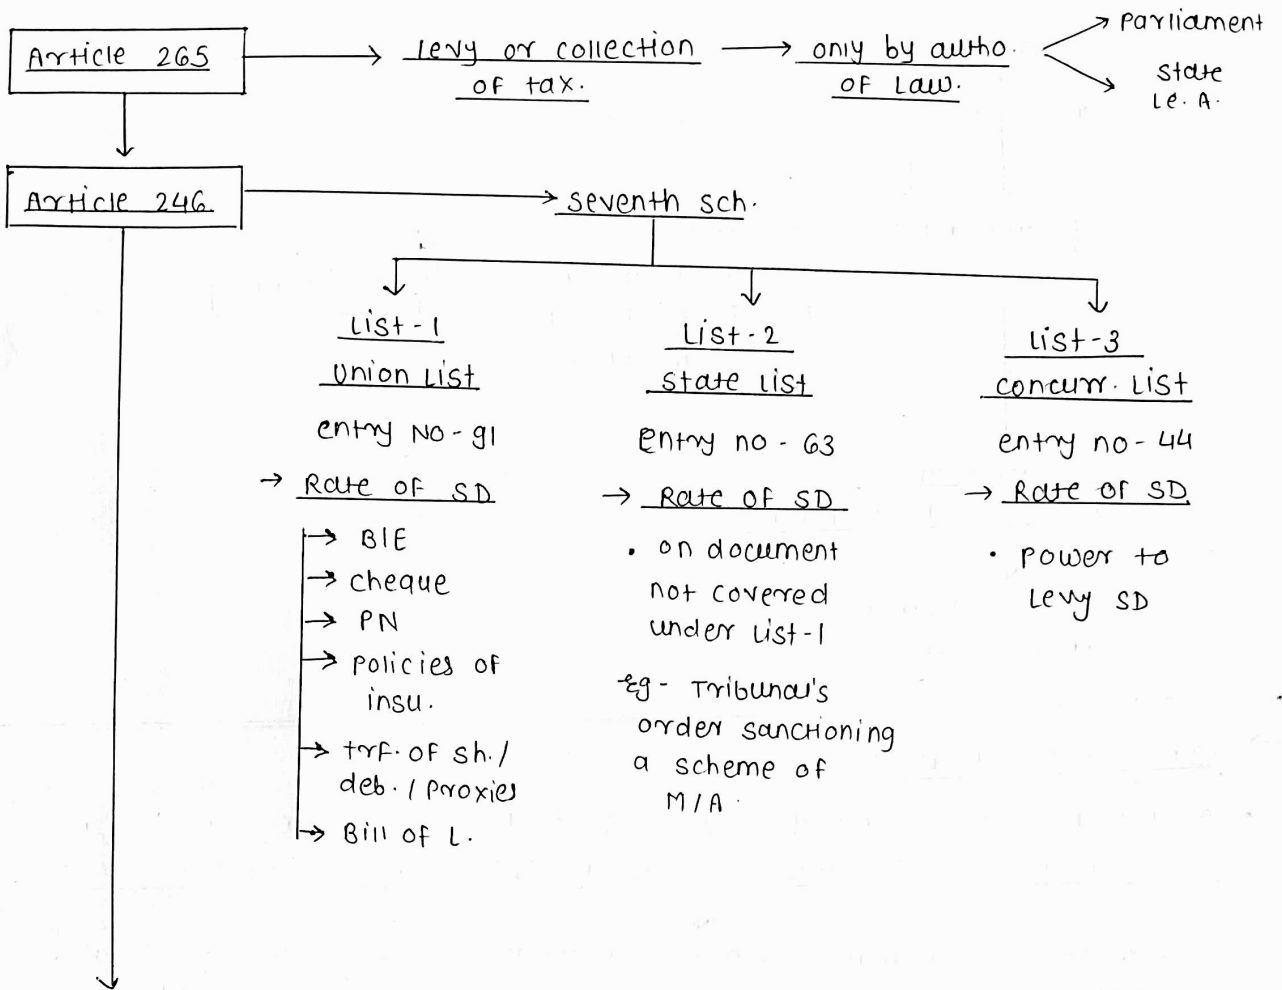 Article 265
levy or collection
of tax.
only by autho.
of Law.
Parliament
State
Le. A.
Article 246
seventh sch.
List-1
Union List
entry NO-91
→ Rate of SD
→ B/E
→ cheque
→ PN
→ policies of
insu.
→ trf. of sh./
deb. / proxies
→ Bill of L.
List-2
state list
Entry no - 63
→ Rate of SD
• on document
not covered
under List-1
eg - Tribunal's
order sanctioning
a scheme of
M/A.
List-3
concurr. List
entry no - 44
→ Rate of SD
• power to
Levy SD